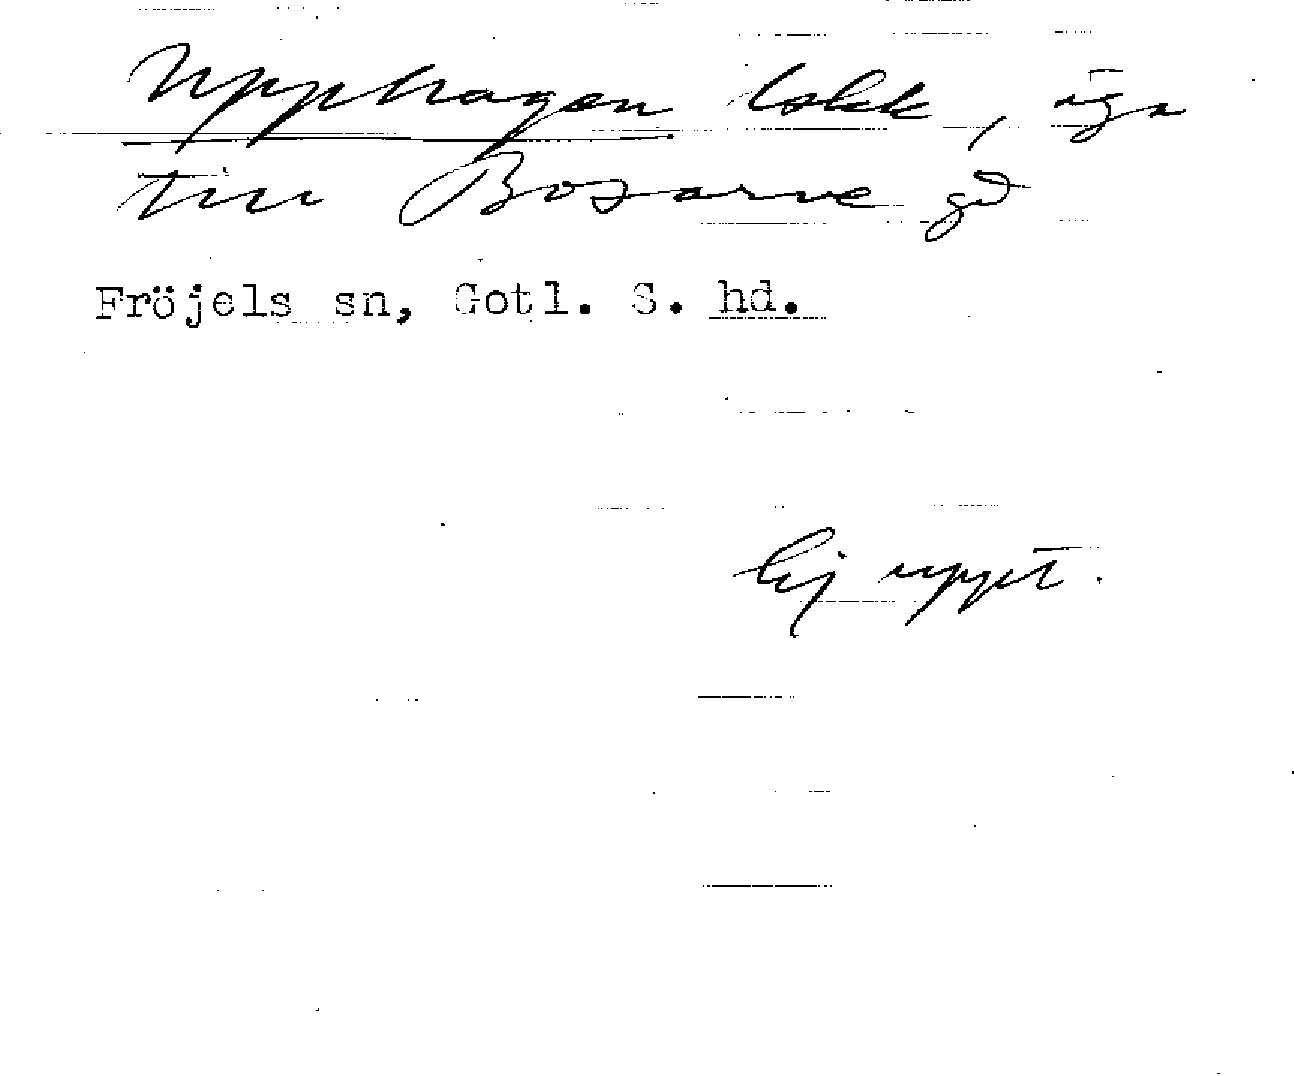 Upphagen lokk, äga
till Bosarve gd
Fröjels sn, Gotl. S. hd.
Ej uppt.